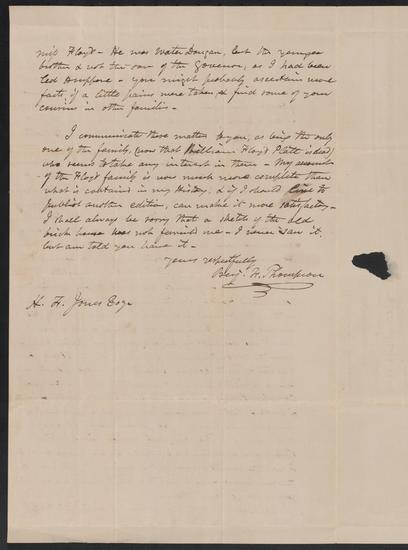 miss Floyd - He was Walter Dongan, but the younger
brother & not the son of the Governor, as I had been
led to suppose - you might probably ascertain more
facts if a little pains were taken, & find some of your
cousins in other families -
I communicate these matters to you, as being the only
one of the family, (now that William Floyd Platt is dead)
who seems to take any interest in them - My account
of the Floyd family is now much more complete than
what is contained in my History, & if I should live to
publish another edition, can make it more satisfactory -
I shall always be sorry that a sketch of the old
brick house was not furnished me - I never saw it,
but am told you have it -
Yours respectfully
Benj. F. Thompson
H. F. Jones Esqr